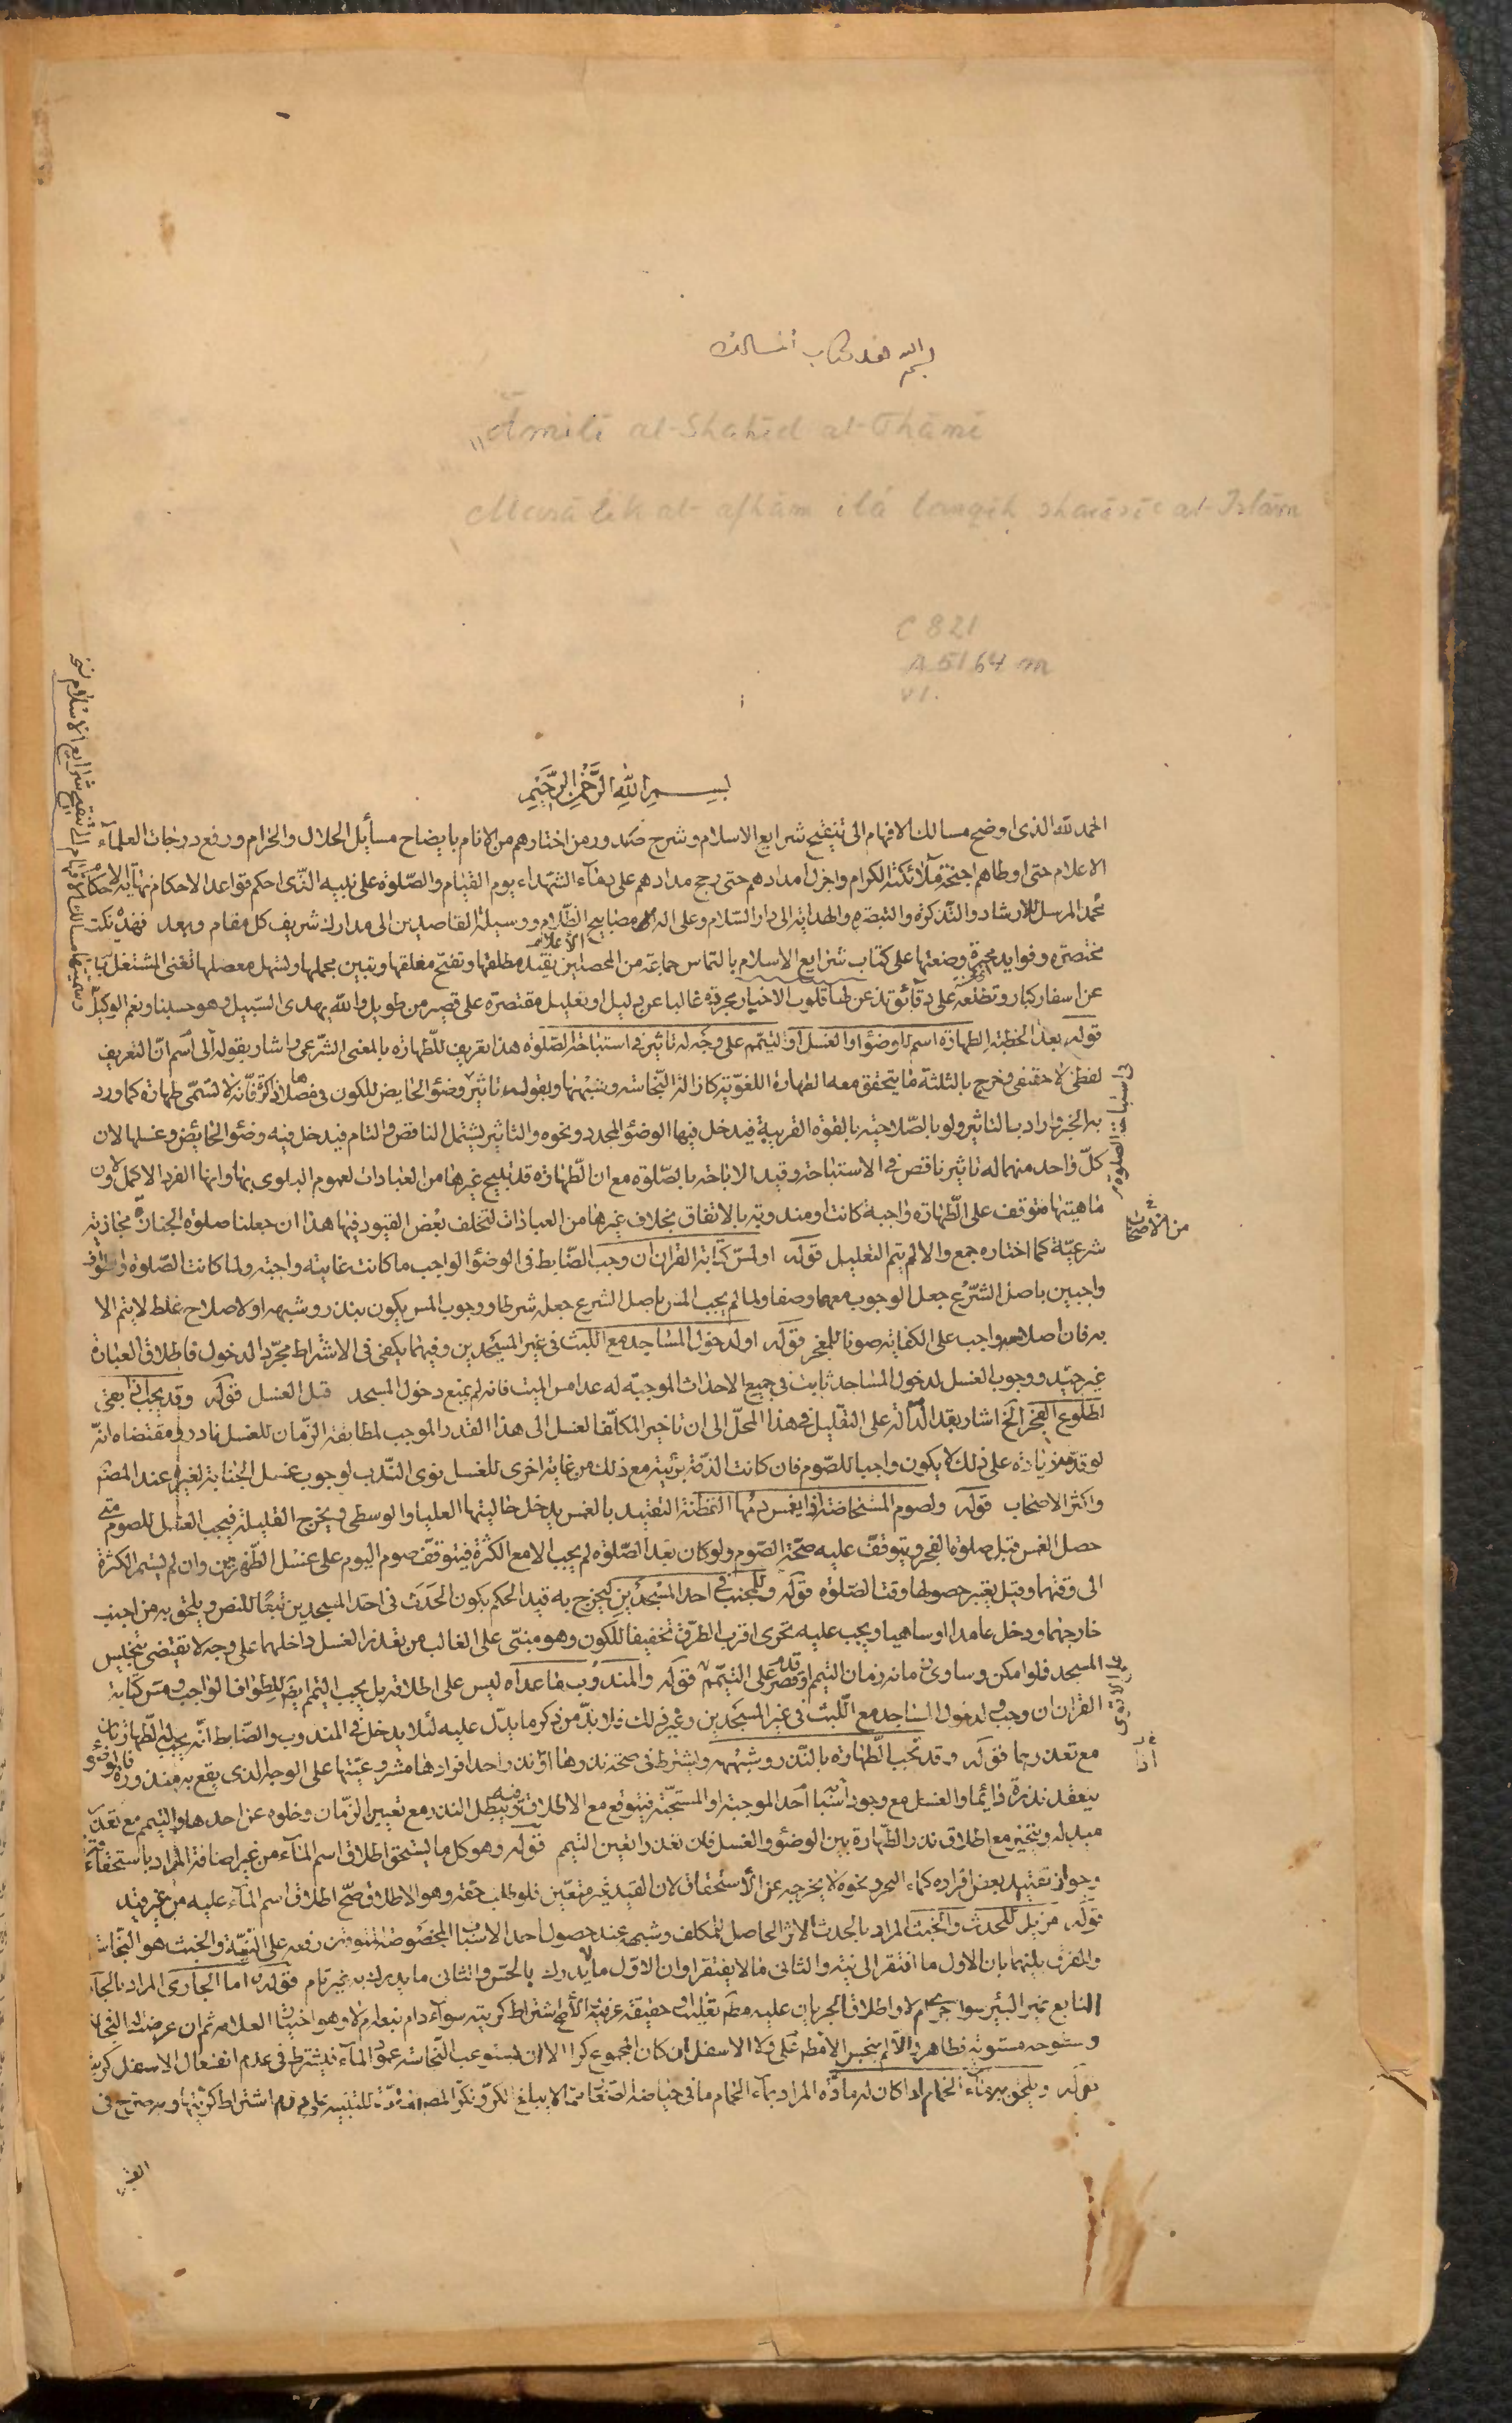 بسم الله هذا كتاب المسالك
'Āmilī al-Shahīd al-Thānī
Masālik al-afhām ilá tanqīḥ sharā'i' al-Islām
C 821
A 5164 m
v1.
بسم الله الرحمن الرحيم
الحمد لله الذى اوضح مسالك الافهام الى تنقيح شرايع الاسلام وشرح صدور من اختارهم من الانام بايضاح مسائل الحلال والحرام ورفع درجات العلمآء
الاعلام حتى اوطاهم اجنحة ملائكته الكرام واجزل امدادهم حتى رجح مدادهم على دمآء الشهداء يوم القيام والصلوة على نبيه الذى احكم قواعد الاحكام نهاية الاحكام
محمد المرسل للارشاد والتذكرة والتبصرة والهداية الى دار السلام وعلى اله مصابيح الظلام ووسيلة القاصدين الى مدارك شريف كل مقام وبعد فهذه نكت
الاعلام
مختصرة وفوايد محررة وضعتها على كتاب شرايع الاسلام بالتماس جماعة من المحصلين تقيد مطلقها وتفتح مغلقها وتبين مجملها وتسهل معضلها تغنى المشتغل بها
عن اسفار كبار وتطلعه على دقائق تذعن لها قلوب الاخيار مجردة غالبا عن دليل او تعليل مقتصرة على قصير من طويل والله يهدى السبيل وهو حسبنا ونعم الوكيل
وسميتها مسالك الافهام الى تنقيح شرايع الاسلام
قوله بعد الخطبة الطهارة اسم للوضوء او الغسل او التيمم على وجه له تاثير فى استباحة الصلوة هذا تعريف للطهارة بالمعنى الشرعى واشار بقوله الى اسم ان التعريف
لفظى لا حقيقى فخرج بالثلثة ما يتحقق معه الطهارة اللغوية كازالة النجاسة وشبهها وبقوله له تاثير وضوء الحايض للكون فى مصلاها ذاكرة فانه لا تسمى طهارة كما ورد
به الخبر واراد بالتاثير ولو بالصلاحية بالقوة القريبة فيدخل فيها الوضوء المجدد ونحوه والتاثير يشمل الناقص والتام فيدخل فيه وضوء الحائض وغسلها لان
كل واحد منهما له تاثير ناقص فى الاستباحة وقيد الاباحة بالصلوة مع ان الطهارة قد تبيح غيرها من العبادات لعموم البلوى بها وانها الفرد الاكمل ولان
ماهيتها متوقف على الطهارة واجبة كانت او مندوبة بالاتفاق بخلاف غيرها من العبادات لتخلف بعض القيود فيها هذا ان جعلنا صلوة الجنازة مجازية
شرعية كما اختاره جمع والا لم يتم التعليل قوله او لمس كتابة القران ان وجب الضابط فى الوضوء الواجب ما كانت غايته واجبة ولما كانت الصلوة والطواف
واجبين باصل الشرع جعل الوجوب معهما وصفا ولما لم يجب المس باصل الشرع جعله شرطا ووجوب المس يكون بنذر وشبهه او لاصلاح غلط لا يتم الا
به فان اصلاحه واجب على الكفاية صونا للمعجز قوله او لدخول المساجد مع اللبث فى غير المسجدين وفيهما يكفى فى الاشتراط مجرد الدخول فاطلاق العبارة
غير جيد ووجوب الغسل لدخول المساجد ثابت فى جميع الاحداث الموجبة له عدا مس الميت فانه لم يمنع دخول المسجد قبل الغسل قوله وقد يجب اذا بقى
لطلوع الفجر الخ اشار بقد الدالة على التقليل فى هذا المحل الى ان تاخير المكلف الغسل الى هذا القدر الموجب لمطابقة الزمان للغسل نادر ومقتضاه انه
لو قدمه زيادة على ذلك لا يكون واجبا للصوم فان كانت الذمة بريئة مع ذلك من غاية اخرى للغسل نوى الندب لوجوب غسل الجنابة لغيره عند المصنف
واكثر الاصحاب قوله ولصوم المستحاضة اذا غمس دمها القطنة التقييد بالغمس يدخل حالتيها العليا والوسطى ويخرج القليلة فيجب الغسل للصوم متى
حصل الغمس قبل صلوة الفجر ويتوقف عليه صحة الصوم ولو كان بعد الصلوة لم يجب الا مع الكثرة فيتوقف صوم اليوم على غسل الظهرين وان لم يستمر الكثرة
الى وقتهما وقيل يعتبر حصولها وقت الصلوة قوله وللمجنب فى احد المسجدين ليخرج به قيد الحكم بكون الحدث فى احد المسجدين تبعا للنص ويلحق به من اجنب
خارجهما ودخل عامدا او ساهيا ويجب عليه تحرى اقرب الطرق تخفيفا للكون وهو مبنى على الغالب من تعذر الغسل داخلهما على وجه لا يقتضى تنجيس
المسجد فلو امكن وساوى زمانه زمان التيمم او قصر قدم على التيمم قوله والمندوب ما عداه ليس على اطلاقه بل يجب التيمم ايضا للطواف الواجب ومس كتابة
القران ان وجب ولدخول المساجد مع اللبث فى غير المسجدين وغير ذلك فلا بد من ذكر ما يدل عليه لئلا يدخل فى المندوب والضابط انه يجب لما يجب له الطهارتان
مع تعذرهما قوله وقد تجب الطهارة بالنذر وشبهه ويشترط فى صحة نذرها او نذر احد افرادها مشروعيتها على الوجه الذى يقع به منذوره فالوضوء
ينعقد نذره دائما والغسل مع وجود احد اسبابه الموجبة او المستحبة فيتوقع مع الاطلاق ويبطل النذر مع تعيين الزمان وخلوه عن احدها والتيمم مع تعذر
مبدله ويتخير مع اطلاق نذر الطهارة بين الوضوء والغسل فان تعذرا تعين التيمم قوله وهو كل ما يستحق اطلاق اسم المآء من غير اضافة المراد باستحقاقه
وجواز تقييد بعض افراده كماء البحر ونحوه لا يخرجه عن الاستحقاق لان القيد غير متعين فلو طلب حقه وهو الاطلاق صح اطلاق اسم المآء عليه من غير قيد
قوله مزيل للحدث والخبث المراد بالحدث الاثر الحاصل للمكلف وشبهه عند حصول احد الاسباب المخصوصة المتوقف رفعه على النية والخبث هو النجاسة
والفرق بينهما بان الاول ما افتقر الى نية والثانى ما لا يفتقر او ان الاول ما لا يدرك بالحس والثانى ما يدرك به غير تام قوله اما الجارى المراد بالجارى
النابع غير البئر سواء جرى ام لا واطلاق الجريان عليه مطلقا تغليب او حقيقة عرفية الاصح اشتراط كريته سوآء دام نبعه ام لا وهو اختيار العلامة ثم ان عرضت له النجاسة
قوله ويلحق به مآء الحمام اذا كان له مادة المراد بمآء الحمام ما فى حياضه الصغار مما لا يبلغ الكر